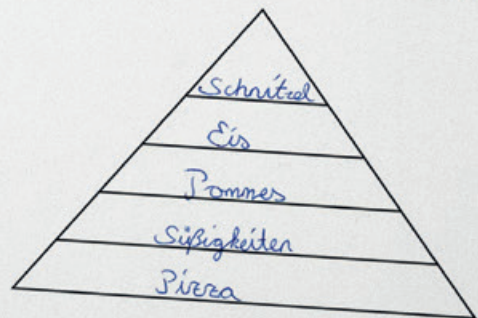 Schnitzel
Eis
Pommes
Süßigkeiten
Pizza